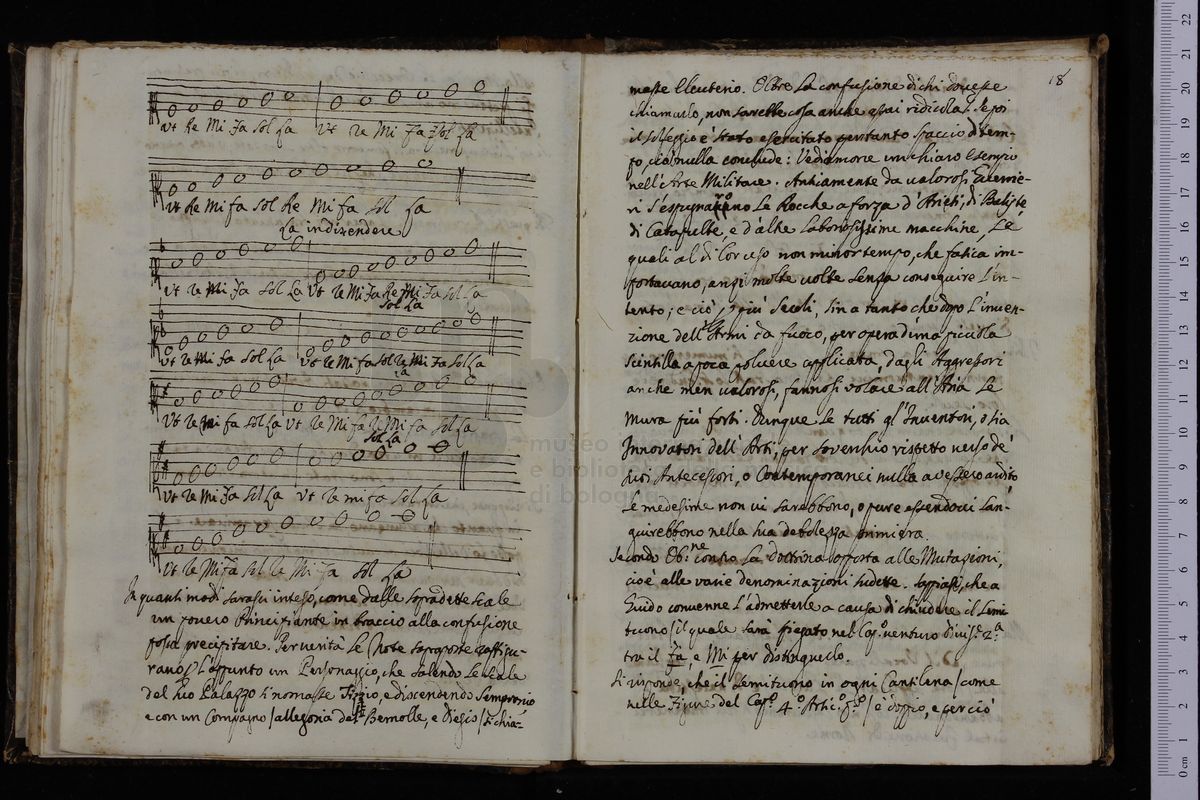 Ut Re Mi Fa Sol La Ut Re Mi Fa Sol La
Ut Re Mi fa Sol Re Mi fa Sol La
La in discendere
Ut re Mi Fa Sol La Ut re Mi Fa Re Mi Fa Sol La
Sol La
Ut re Mi fa Sol La Ut re Mi fa Sol re Mi Fa Sol La
Ut re Mi fa Sol La Ut re Mi fa re Mi fa Sol La
Sol La
Ut re Mi Fa Sol La Ut re mi fa Sol La
Ut re Mi Fa Sol re Mi Fa Sol La
In quanti modi sarassi inteso, come dalle sopradette scale
un povero Principiante in braccio alla confusione
possa precipitare. Per verità le Note sopraposte raffigu-
rano l'appunto un Personaggio, che salendo le scale
del suo Palazzo si nomasse Tizzio, e discendendo Sempronio
e con un Compagno /allegoria del Bemolle, e Diesis/ si chia-
18
masse Eleuterio. Oltre la confusione di chi dovesse
chiamarlo, non sarebbe cosa anche assai ridicola? Se poi
il solfeggio è stato esercitato per tanto spaccio di tem-
po, ciò nulla conclude: Vediamone un chiaro Esempio
nell'Arte Militare. Antiamente da valorosi Guerrie-
ri s'espugnarono le Rocche a forza d'Arieti, di Baliste,
di Catapulte, e d'altre laboriosissime macchine, Le
quali al di lor uso non minor tempo, che fatica im-
portavano, anzi molte volte senza conseguire l'in-
tento; e ciò p più Secoli, sin a tanto che dopo l'inven-
zione dell'Armi da fuoco, per opera d'una piccola
scintilla a poca polvere applicata, dagli Aggressori
anche men valorosi, fannosi volare all'Aria Le
mura più forti. Dunque se tutti gl'Inventori, o sia
Innovatori dell'Arti, per soverchio rispetto verso de'
suoi Antecessori, o Contemporanei nulla avessero ardito,
Le medesime non vi sarebbono, o pure essendovi lan-
guirebbono nella sua debolezza primiera.
Secondo Ob:ne contro La dottrina opposta alle Mutazioni,
cioè alle varie denominazioni sudette. Sappiasi, che a
Guido convenne l'admetterle a causa di chiudere il Semi
tuono /il quale sarà spiegato nel Cap.o venturo Divis.e 2.a
tra il Fa, e Mi per distinguerlo.
Si risponde, che il semituono in ogni Cantilena /come
nelle Figure del Cap.o 4.o Artic.o / è doppio, e perciò